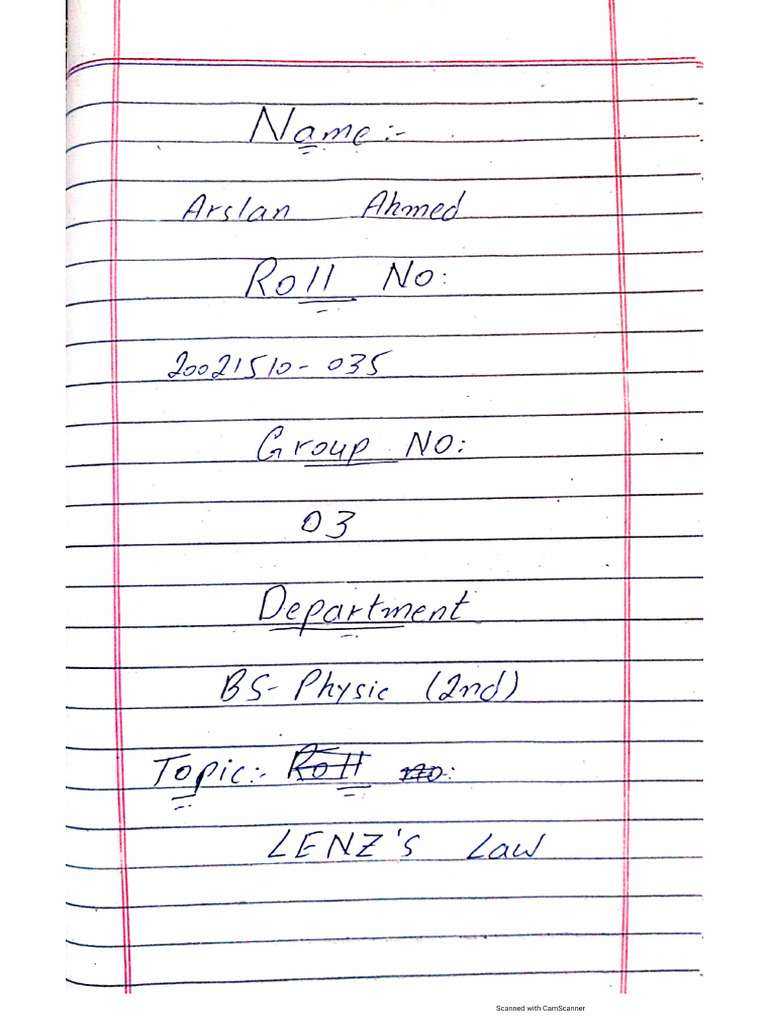 Name:-
Arslan Ahmed
Roll No:
20021510-035
Group NO:
03
Department
BS-Physic (2nd)
Topic:- Roll no:
LENZ's Law
Scanned with CamScanner